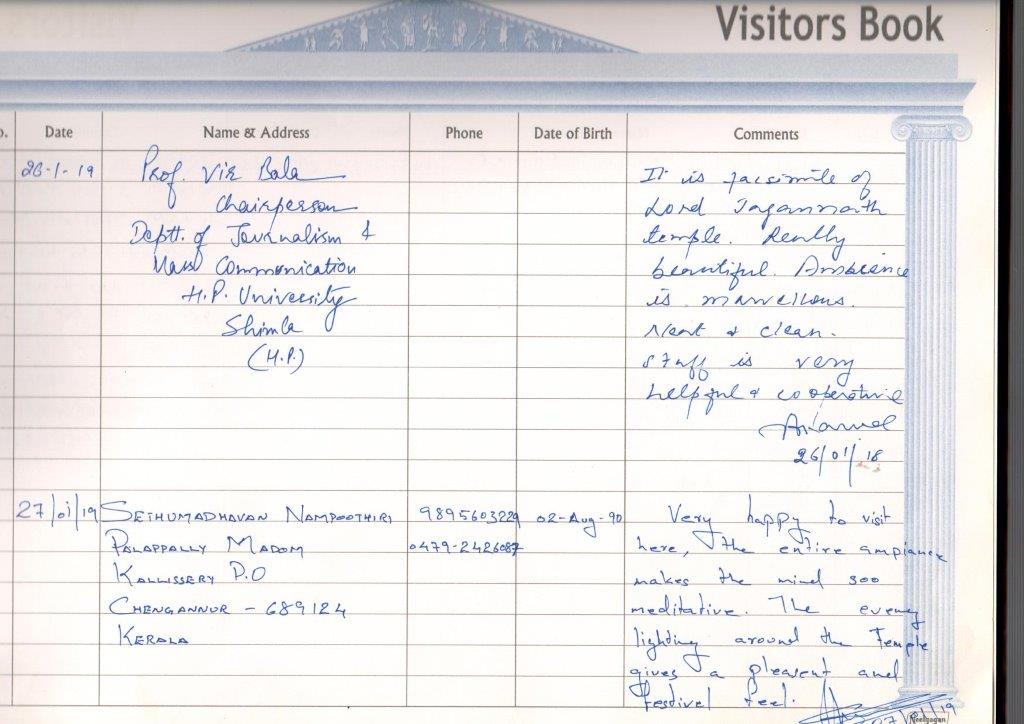 Visitors Book
Date Name & Address Phone Date of Birth Comments
26-1-19 Prof. Vir Bala It is facsimile of
Chairperson Lord Jagannath
Deptt. of Journalism & temple. Really
Mass Communication beautiful. Ambience
H.P. University is marvellous.
Shimla Neat & clean.
(H.P.) Staff is very
helpful & cooperative
26/01/18
27/01/19 SETHUMADHAVAN NAMPOOTHIRI 9895603229 02-Aug-90 Very happy to visit
PALAPPALLY MADOM 0479-2426087 here, the entire ampiance
KALLISSERY P.O makes the mind soo
CHENGANNUR - 689124 meditative. The eveny
KERALA lighting around the Temple
gives a pleasent and
festivel feel.
Neelgagan